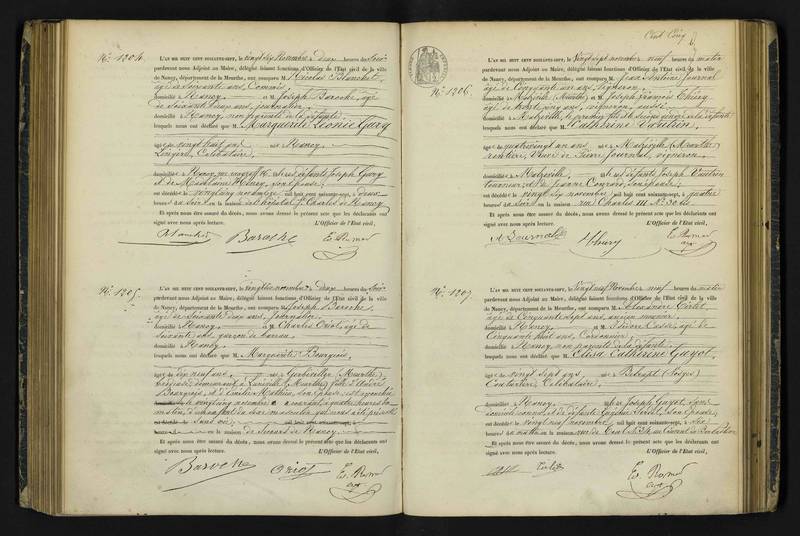 N.º 1204.
L'AN MIL HUIT CENT SOIXANTE-SEPT, le Vingt six Novembre à deux heures du Soir
pardevant nous Adjoint au Maire, délégué faisant fonctions d'Officier de l'État civil de la ville
de Nancy, département de la Meurthe, ont comparu M. Nicolas Blanchet
âgé de soixante ans, Commis,
domicilié à Nancy et M. Joseph Baroche, âgé
de soixante deux ans, journalier,
domicilié à Nancy non parents de la défunte
lesquels nous ont déclaré que M. Marguerite Léonie Gary
âgé de vingt huit ans né à Nancy
Lingère, Célibataire,
domicilié à Nancy fille des défunts Joseph Gary
et de Madelaine Henry, son épouse,
est décédée le vingt cinq novembre mil huit cent soixante-sept, à deux
heures du soir en la maison de l'hôpital St Charles de Nancy
Et après nous être assuré du décès, nous avons dressé le présent acte que les déclarants ont
signé avec nous après lecture. L'Officier de l'État civil,
Blanchet Baroche
N.º 1205.
L'AN MIL HUIT CENT SOIXANTE-SEPT, le Vingt six novembre à deux heures du Soir
pardevant nous Adjoint au Maire, délégué faisant fonctions d'Officier de l'État civil de la ville
de Nancy, département de la Meurthe, ont comparu M. Joseph Baroche,
âgé de soixante deux ans, journalier,
domicilié à Nancy et M. Charles Oriot, âgé de
soixante ans, garçon de bureau
domicilié à Nancy
lesquels nous ont déclaré que M. Marguerite Bourgeois
âgé de dix neuf ans, né à Gerbéviller (Meurthe),
demeurant à Lunéville (Meurthe) fille d'André
Bourgeois, et d'Emilie Mathieu, son épouse, est
le vingt cinq novembre courant, à quatre heures du
matin,
en la maison de Secours de Nancy
Et après nous être assuré du décès, nous avons dressé le présent acte que les déclarants ont
signé avec nous après lecture. L'Officier de l'État civil,
Baroche Oriot
Cent Cinq
N.º 1206.
L'AN MIL HUIT CENT SOIXANTE-SEPT, le Vingt sept novembre neuf heures du matin
pardevant nous Adjoint au Maire, délégué faisant fonctions d'Officier de l'État civil de la ville
de Nancy, département de la Meurthe, ont comparu M. Jean Antoine Journal
âgé de Cinquante un ans, Vigneron,
domicilié à Malzéville (Meurthe) et M. Joseph François Thiéry
âgé de ans, vigneron, aussi
domicilié à Malzéville, le premier fils et le second gendre de la défunte
lesquels nous ont déclaré que M. Katherine Vautrin
âgé de quatre vingt un ans né à Malzéville (Meurthe)
rentière, Veuve de Pierre Journal, vigneron,
domicilié à Malzéville, fille des défunts Joseph Vautrin
tourneur, et de Jeanne Conrard, son épouse,
est décédée le vingt six novembre mil huit cent soixante-sept, à quatre
heures du soir en la maison rue Charles III N.º 30 bis
Et après nous être assuré du décès, nous avons dressé le présent acte que les déclarants ont
signé avec nous après lecture. L'Officier de l'État civil,
A Journal Thiéry
N.º 1207.
L'AN MIL HUIT CENT SOIXANTE-SEPT, le Vingt neuf Novembre neuf heures du matin
pardevant nous Adjoint au Maire, délégué faisant fonctions d'Officier de l'État civil de la ville
de Nancy, département de la Meurthe, ont comparu M. Alexandre
âgé de Cinquante sept ans, ancien
domicilié à Nancy et M. Isidore âgé de
Cinquante huit ans, Cordonnier,
domicilié à Nancy, non parents de la défunte
lesquels nous ont déclaré que M. Elisa Catherine Gayot
âgé de vingt sept ans, né à (Vosges)
Couturière, Célibataire,
domicilié à Nancy fille de Joseph Gayot, sans
domicile connu, et de défunte son épouse,
est décédée le vingt neuf novembre mil huit cent soixante-sept, à
heures du matin en la maison rue
Et après nous être assuré du décès, nous avons dressé le présent acte que les déclarants ont
signé avec nous après lecture. L'Officier de l'État civil,